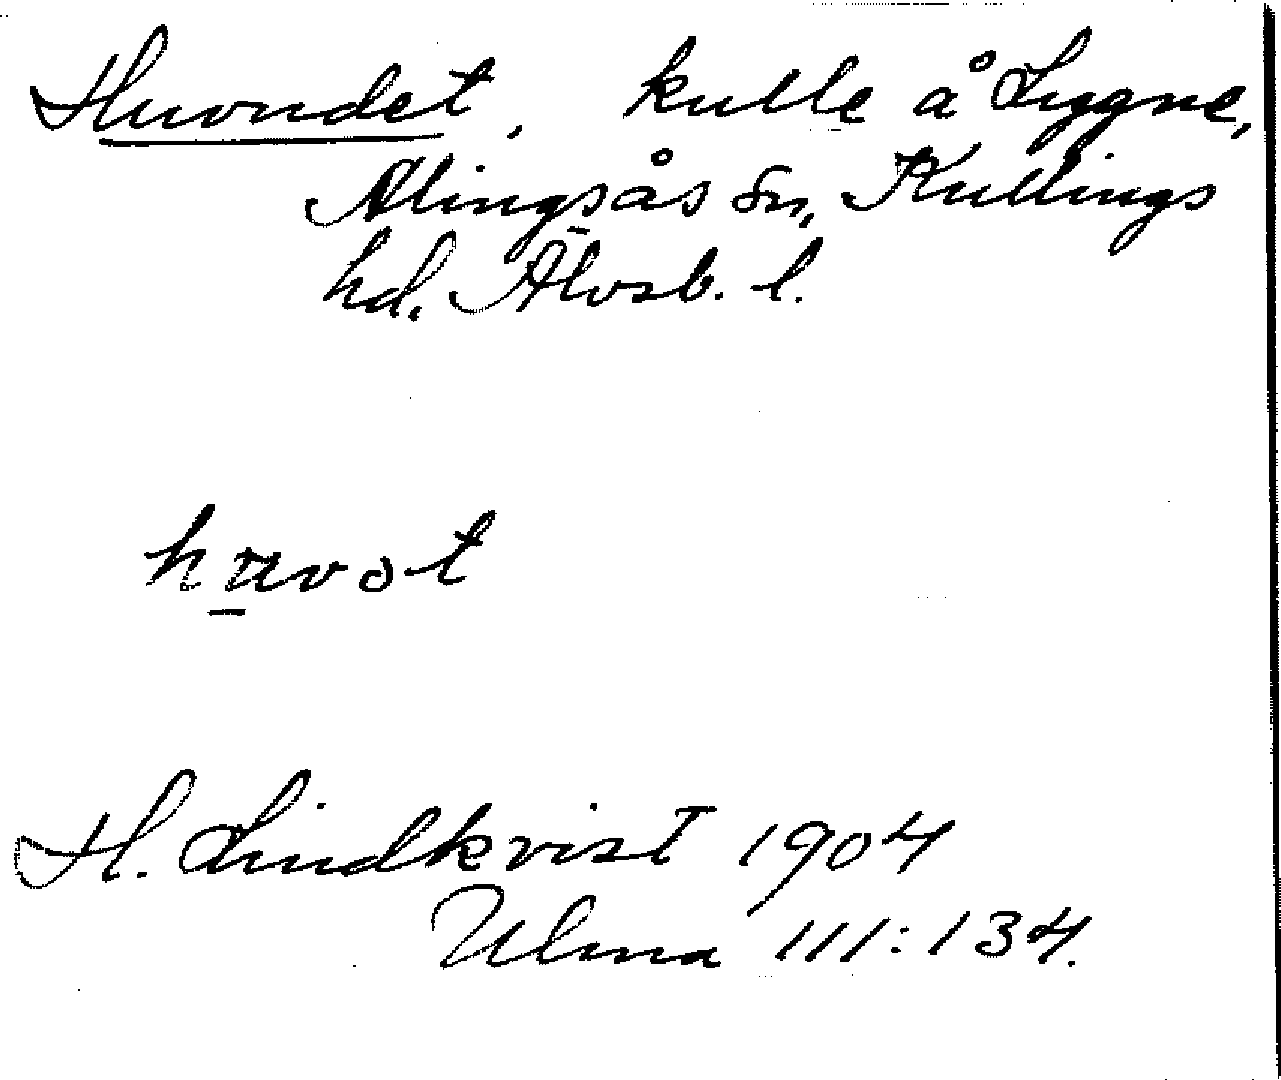 Huvudet, kulle å Lygne,
Alingsås sn, Kullings
hd. Älvsb. l.
H. Lindkvist 1904
Ulma 111:134.